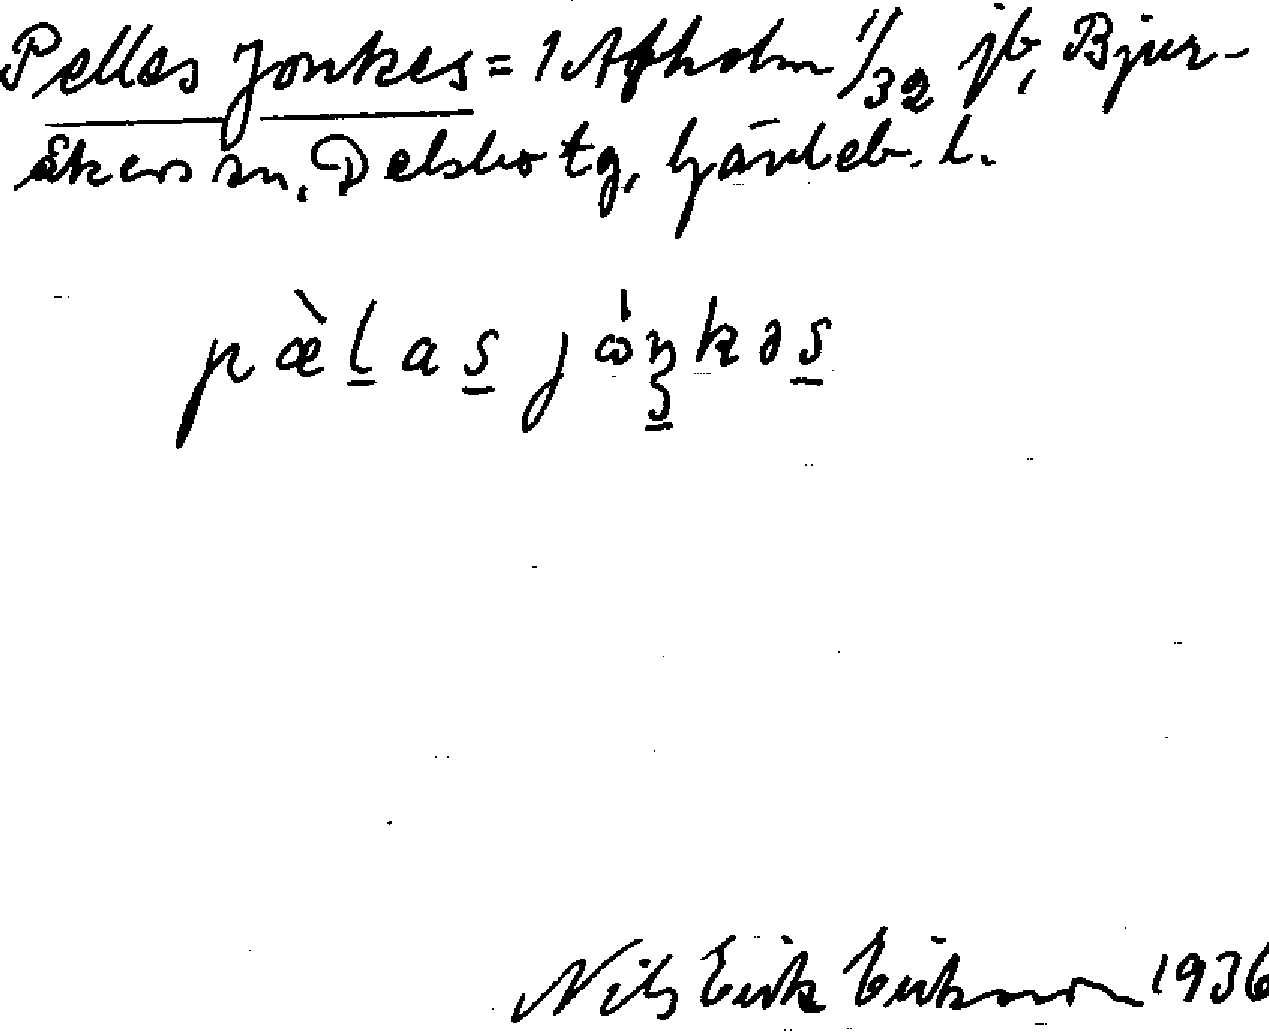 Pellas Jonkes = 1 Avholm 1/32 jb, Bjur-
åkers sn, Delsbo tg, Gävleb. l.
pæ̀l̲as̲ jɷ́ŋkəs̲
Nils Erik Erikson 1936